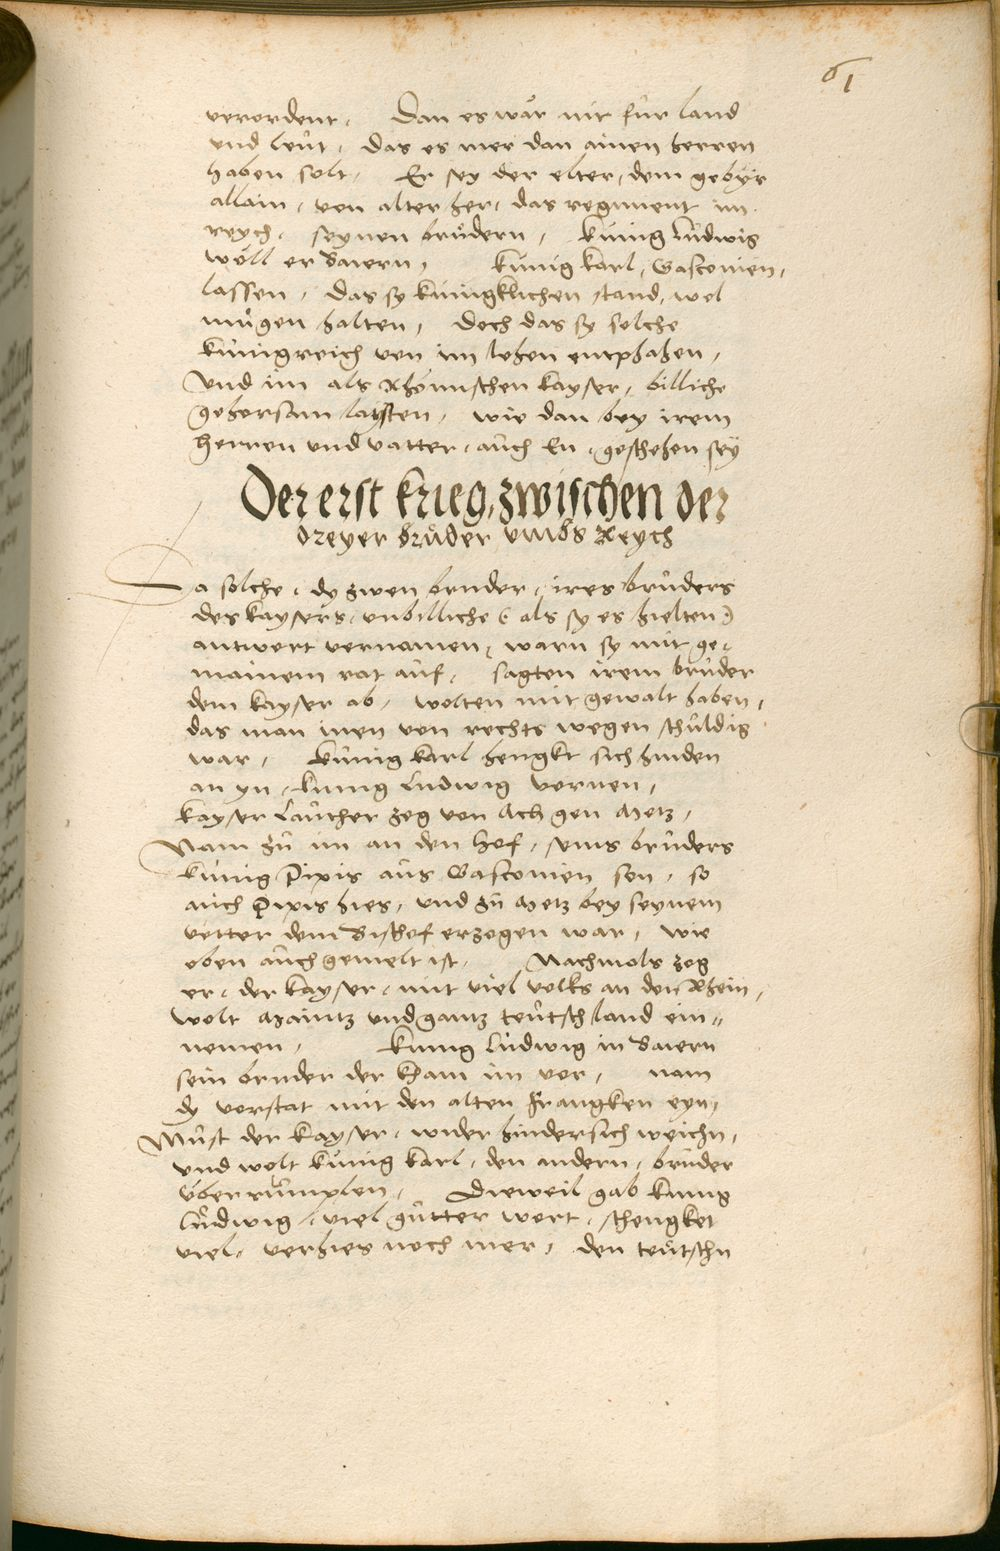 61
verordent, Dan es wär nit für land
und leüt, das es mer dan ainen herren
haben solt, Er sey der elter, dem gebÿr
allain, von alter her, das regiment im
reych, seynen brüdern, künig Ludwig
wöll er Baiern, künig karl, Gasconien,
lassen, das sy künigklichen stand, wol
mügen halten, doch das sy solche
künigreich von im lehen entphahen,
Und im als Rhömischen kayser, billiche
gehorsam laysten, wie dan bey irem
herren und vatter, auch Eu, geschehen sey
Der erst krieg, zwischen der
dreyer brüder umbs Reych
Da solche, dy zwen bruder, ires brüders
des kaysers, unbilliche (als sy es hielten)
antwort vernamen, warn sy mit ge-
mainem rat auf, sagten irem brüder
dem kayser ab, wolten mit gewalt haben,
das man inen von rechts wegen schüldig
war, künig karl hengkt sich hinden
an yn, künig Ludwig vornen,
kayser Lauther zog von Ach gen Metz,
Nam zü im an den hof, seins brüders
künig Pipis aus Gasconien son, so
auch Pipis hies, und zu Metz bey seynem
vetter dem Bischof erzogen war, wie
oben auch gemelt ist, Nachmols zog
er, der kayser, mit viel volks an den Rhein,
wolt Maintz und gantz teütsch land ein-
nemen, künig Ludwig in Baiern
sein bruder der kam im vor, nam
dy vorstat mit den alten Frangken eyn,
Must der kayser, wider hindersich weichn,
und wolt künig karl, den andern, brüder
überrümplen, Dieweil gab künig
Ludwig, viel gütter wort, schengket
viel, verhies noch mer, den teütschn